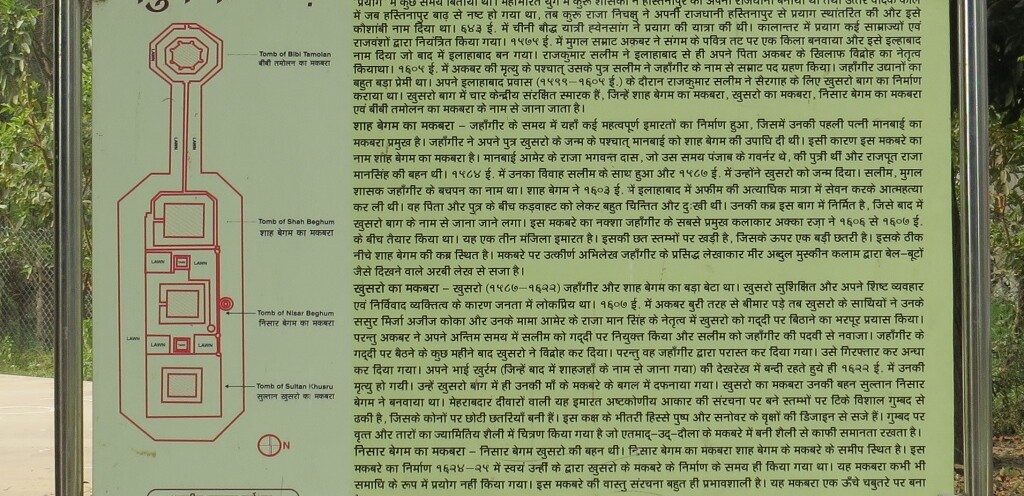 में जब हस्तिनापुर बाढ़ से नष्ट हो गया था, तब कुरू राजा निचक्षु ने अपनी राजधानी हस्तिनापुर से प्रयाग स्थांतरित की और इसे
कोशांबी नाम दिया था। ६४३ ई. में चीनी बौद्ध यात्री ह्वेनसांग ने प्रयाग की यात्रा की थी। कालान्तर में प्रयाग कई साम्राज्यों एवं
राजवंशों द्वारा नियंत्रित किया गया। १५७५ ई. में मुगल सम्राट अकबर ने संगम के पवित्र तट पर एक किला बनवाया और इसे इलाहबाद
नाम दिया जो बाद में इलाहाबाद बन गया। राजकुमार सलीम ने इलाहाबाद से ही अपने पिता अकबर के खिलाफ विद्रोह का नेतृत्व
कियाथा। १६०५ ई. में अकबर की मृत्यु के पश्चात् उसके पुत्र सलीम ने जहाँगीर के नाम से सम्राट पद ग्रहण किया। जहाँगीर उद्यानों का
बहुत बड़ा प्रेमी था। अपने इलाहाबाद प्रवास (१५९९–१६०५ ई.) के दौरान राजकुमार सलीम ने सैरगाह के लिए खुसरो बाग का निर्माण
कराया था। खुसरो बाग में चार केन्द्रीय संरक्षित स्मारक हैं, जिन्हें शाह बेगम का मकबरा, खुसरो का मकबरा, निसार बेगम का मकबरा
एवं बीबी तमोलन का मकबरा के नाम से जाना जाता है।
शाह बेगम का मकबरा – जहाँगीर के समय में यहाँ कई महत्वपूर्ण इमारतों का निर्माण हुआ, जिसमें उनकी पहली पत्नी मानबाई का
मकबरा प्रमुख है। जहाँगीर ने अपने पुत्र खुसरो के जन्म के पश्चात् मानबाई को शाह बेगम की उपाधि दी थी। इसी कारण इस मकबरे का
नाम शाह बेगम का मकबरा है। मानबाई आमेर के राजा भगवन्त दास, जो उस समय पंजाब के गवर्नर थे, की पुत्री थीं और राजपूत राजा
मानसिंह की बहन थी। १५८४ ई. में उनका विवाह सलीम के साथ हुआ और १५८७ ई. में उन्होंने खुसरो को जन्म दिया। सलीम, मुगल
शासक जहाँगीर के बचपन का नाम था। शाह बेगम ने १६०३ ई. में इलाहाबाद में अफीम की अत्याधिक मात्रा में सेवन करके आत्महत्या
कर ली थी। वह पिता और पुत्र के बीच कड़वाहट को लेकर बहुत चिन्तित और दुःखी थी। उनकी कब्र इस बाग में निर्मित है, जिसे बाद में
खुसरो बाग के नाम से जाना जाने लगा। इस मकबरे का नक्शा जहाँगीर के सबसे प्रमुख कलाकार अक्का रज़ा ने १६०६ से १६०७ ई.
के बीच तैयार किया था। यह एक तीन मंजिला इमारत है। इसकी छत स्तम्भों पर खड़ी है, जिसके ऊपर एक बड़ी छतरी है। इसके ठीक
नीचे शाह बेगम की कब्र स्थित है। मकबरे पर उत्कीर्ण अभिलेख जहाँगीर के प्रसिद्ध लेखाकार मीर अब्दुल मुस्कीन कलाम द्वारा बेल–बूटों
जैसे दिखने वाले अरबी लेख से सजा है।
खुसरो का मकबरा – खुसरो (१५८७–१६२२) जहाँगीर और शाह बेगम का बड़ा बेटा था। खुसरो सुशिक्षित और अपने शिष्ट व्यवहार
एवं निर्विवाद व्यक्तित्व के कारण जनता में लोकप्रिय था। १६०७ ई. में अकबर बुरी तरह से बीमार पड़े तब खुसरो के साथियों ने उनके
ससुर मिर्जा अजीज कोका और उनके मामा आमेर के राजा मान सिंह के नेतृत्व में खुसरो को गद्दी पर बिठाने का भरपूर प्रयास किया।
परन्तु अकबर ने अपने अन्तिम समय में सलीम को गद्दी पर नियुक्त किया और सलीम को जहाँगीर की पदवी से नवाजा। जहाँगीर के
गद्दी पर बैठने के कुछ महीने बाद खुसरो ने विद्रोह कर दिया। परन्तु वह जहाँगीर द्वारा परास्त कर दिया गया। उसे गिरफ्तार कर अन्धा
कर दिया गया। अपने भाई खुर्रम (जिन्हें बाद में शाहजहाँ के नाम से जाना गया) की देखरेख में बन्दी रहते हुये ही १६२२ ई. में उनकी
मृत्यु हो गयी। उन्हें खुसरो बाग में ही उनकी माँ के मकबरे के बगल में दफनाया गया। खुसरो का मकबरा उनकी बहन सुल्तान निसार
बेगम ने बनवाया था। मेहराबदार दीवारों वाली यह इमारत अष्टकोणीय आकार की संरचना पर बने स्तम्भों पर टिके विशाल गुम्बद से
ढकी है, जिसके कोनों पर छोटी छतरियाँ बनी हैं। इस कक्ष के भीतरी हिस्से पुष्प और सनोवर के वृक्षों की डिजाइन से सजे हैं। गुम्बद पर
वृत्त और तारों का ज्यामितिय शैली में चित्रण किया गया है जो एतमाद्–उद्–दौला के मकबरे में बनी शैली से काफी समानता रखता है।
निसार बेगम का मकबरा – निसार बेगम खुसरो की बहन थी। निसार बेगम का मकबरा शाह बेगम के मकबरे के समीप स्थित है। इस
मकबरे का निर्माण १६२४–२५ में स्वयं उन्हीं के द्वारा खुसरो के मकबरे के निर्माण के समय ही किया गया था। यह मकबरा कभी भी
समाधि के रूप में प्रयोग नहीं किया गया। इस मकबरे की वास्तु संरचना बहुत ही प्रभावशाली है। यह मकबरा एक ऊँचे चबुतरे पर बना
Tomb of Bibi Tamolan
बीबी तमोलन का मकबरा
LAWN
LAWN
Tomb of Shah Beghum
शाह बेगम का मकबरा
LAWN
LAWN
Tomb of Nisar Beghum
निसार बेगम का मकबरा
LAWN
LAWN
LAWN
Tomb of Sultan Khusru
सुल्तान खुसरो का मकबरा
N